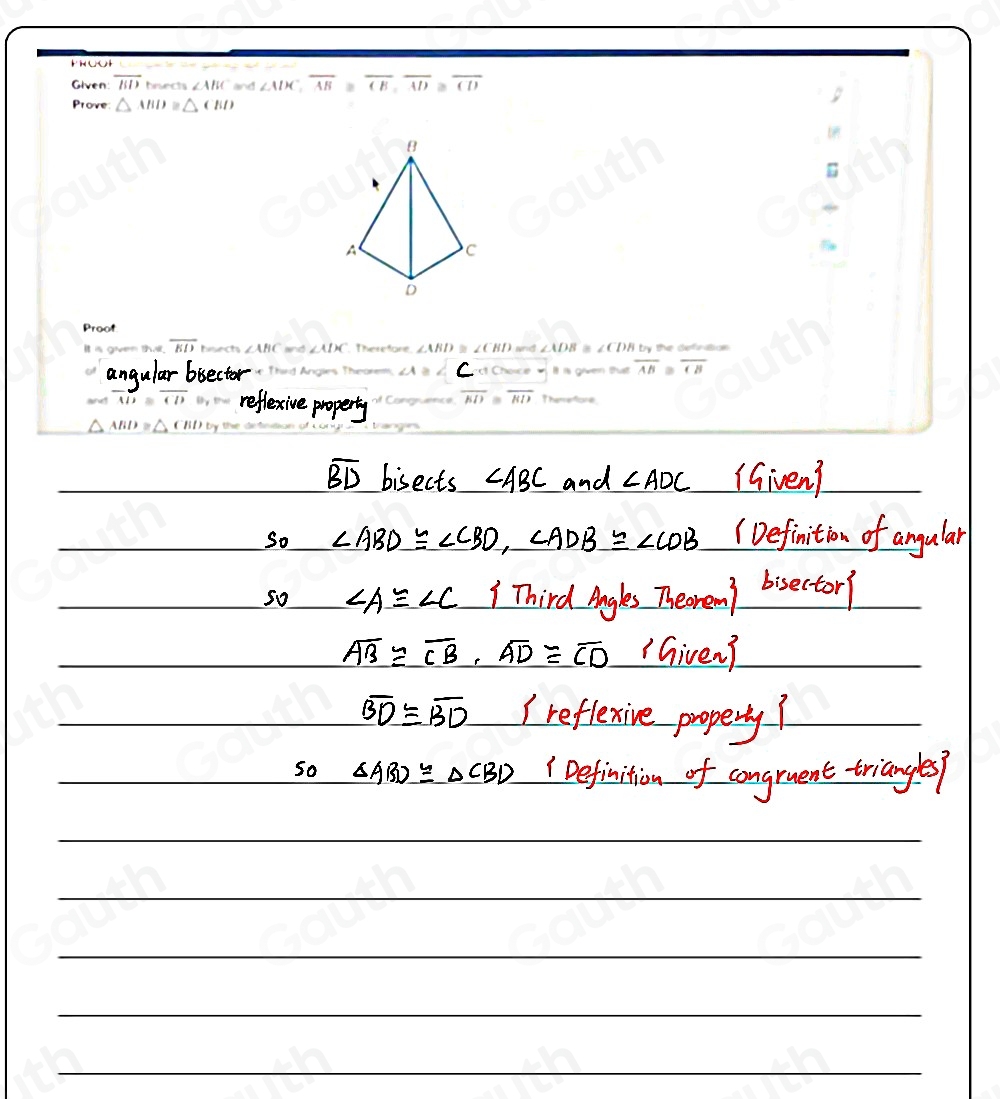 PROOF
Given: BD bisects ∠ABC and ∠ADC, AB ≅ CB, AD ≅ CD
Prove: △ ABD ≅ △ CBD
B
A
C
D
Proof
It is given that, BD bisects ∠ABC and ∠ADC. Therefore, ∠ABD ≅ ∠CBD and ∠ADB ≅ ∠CDB by the definition
of angular bisector Third Angles Theorem, ∠A ≅ ∠ C Choice It is given that AB ≅ CB
and AD ≅ CD By the reflexive property of Congruence, BD ≅ BD Therefore,
△ ABD ≅ △ CBD by the definition of triangles
BD bisects ∠ABC and ∠ADC {Given}
so ∠ABD ≅ ∠CBD, ∠ADB ≅ ∠CDB {Definition of angular
bisector}
so ∠A ≅ ∠C {Third Angles Theorem}
AB ≅ CB, AD ≅ CD {Given}
BD ≅ BD {reflexive property}
so △ABD ≅ △CBD {Definition of congruent triangles}
Gauth